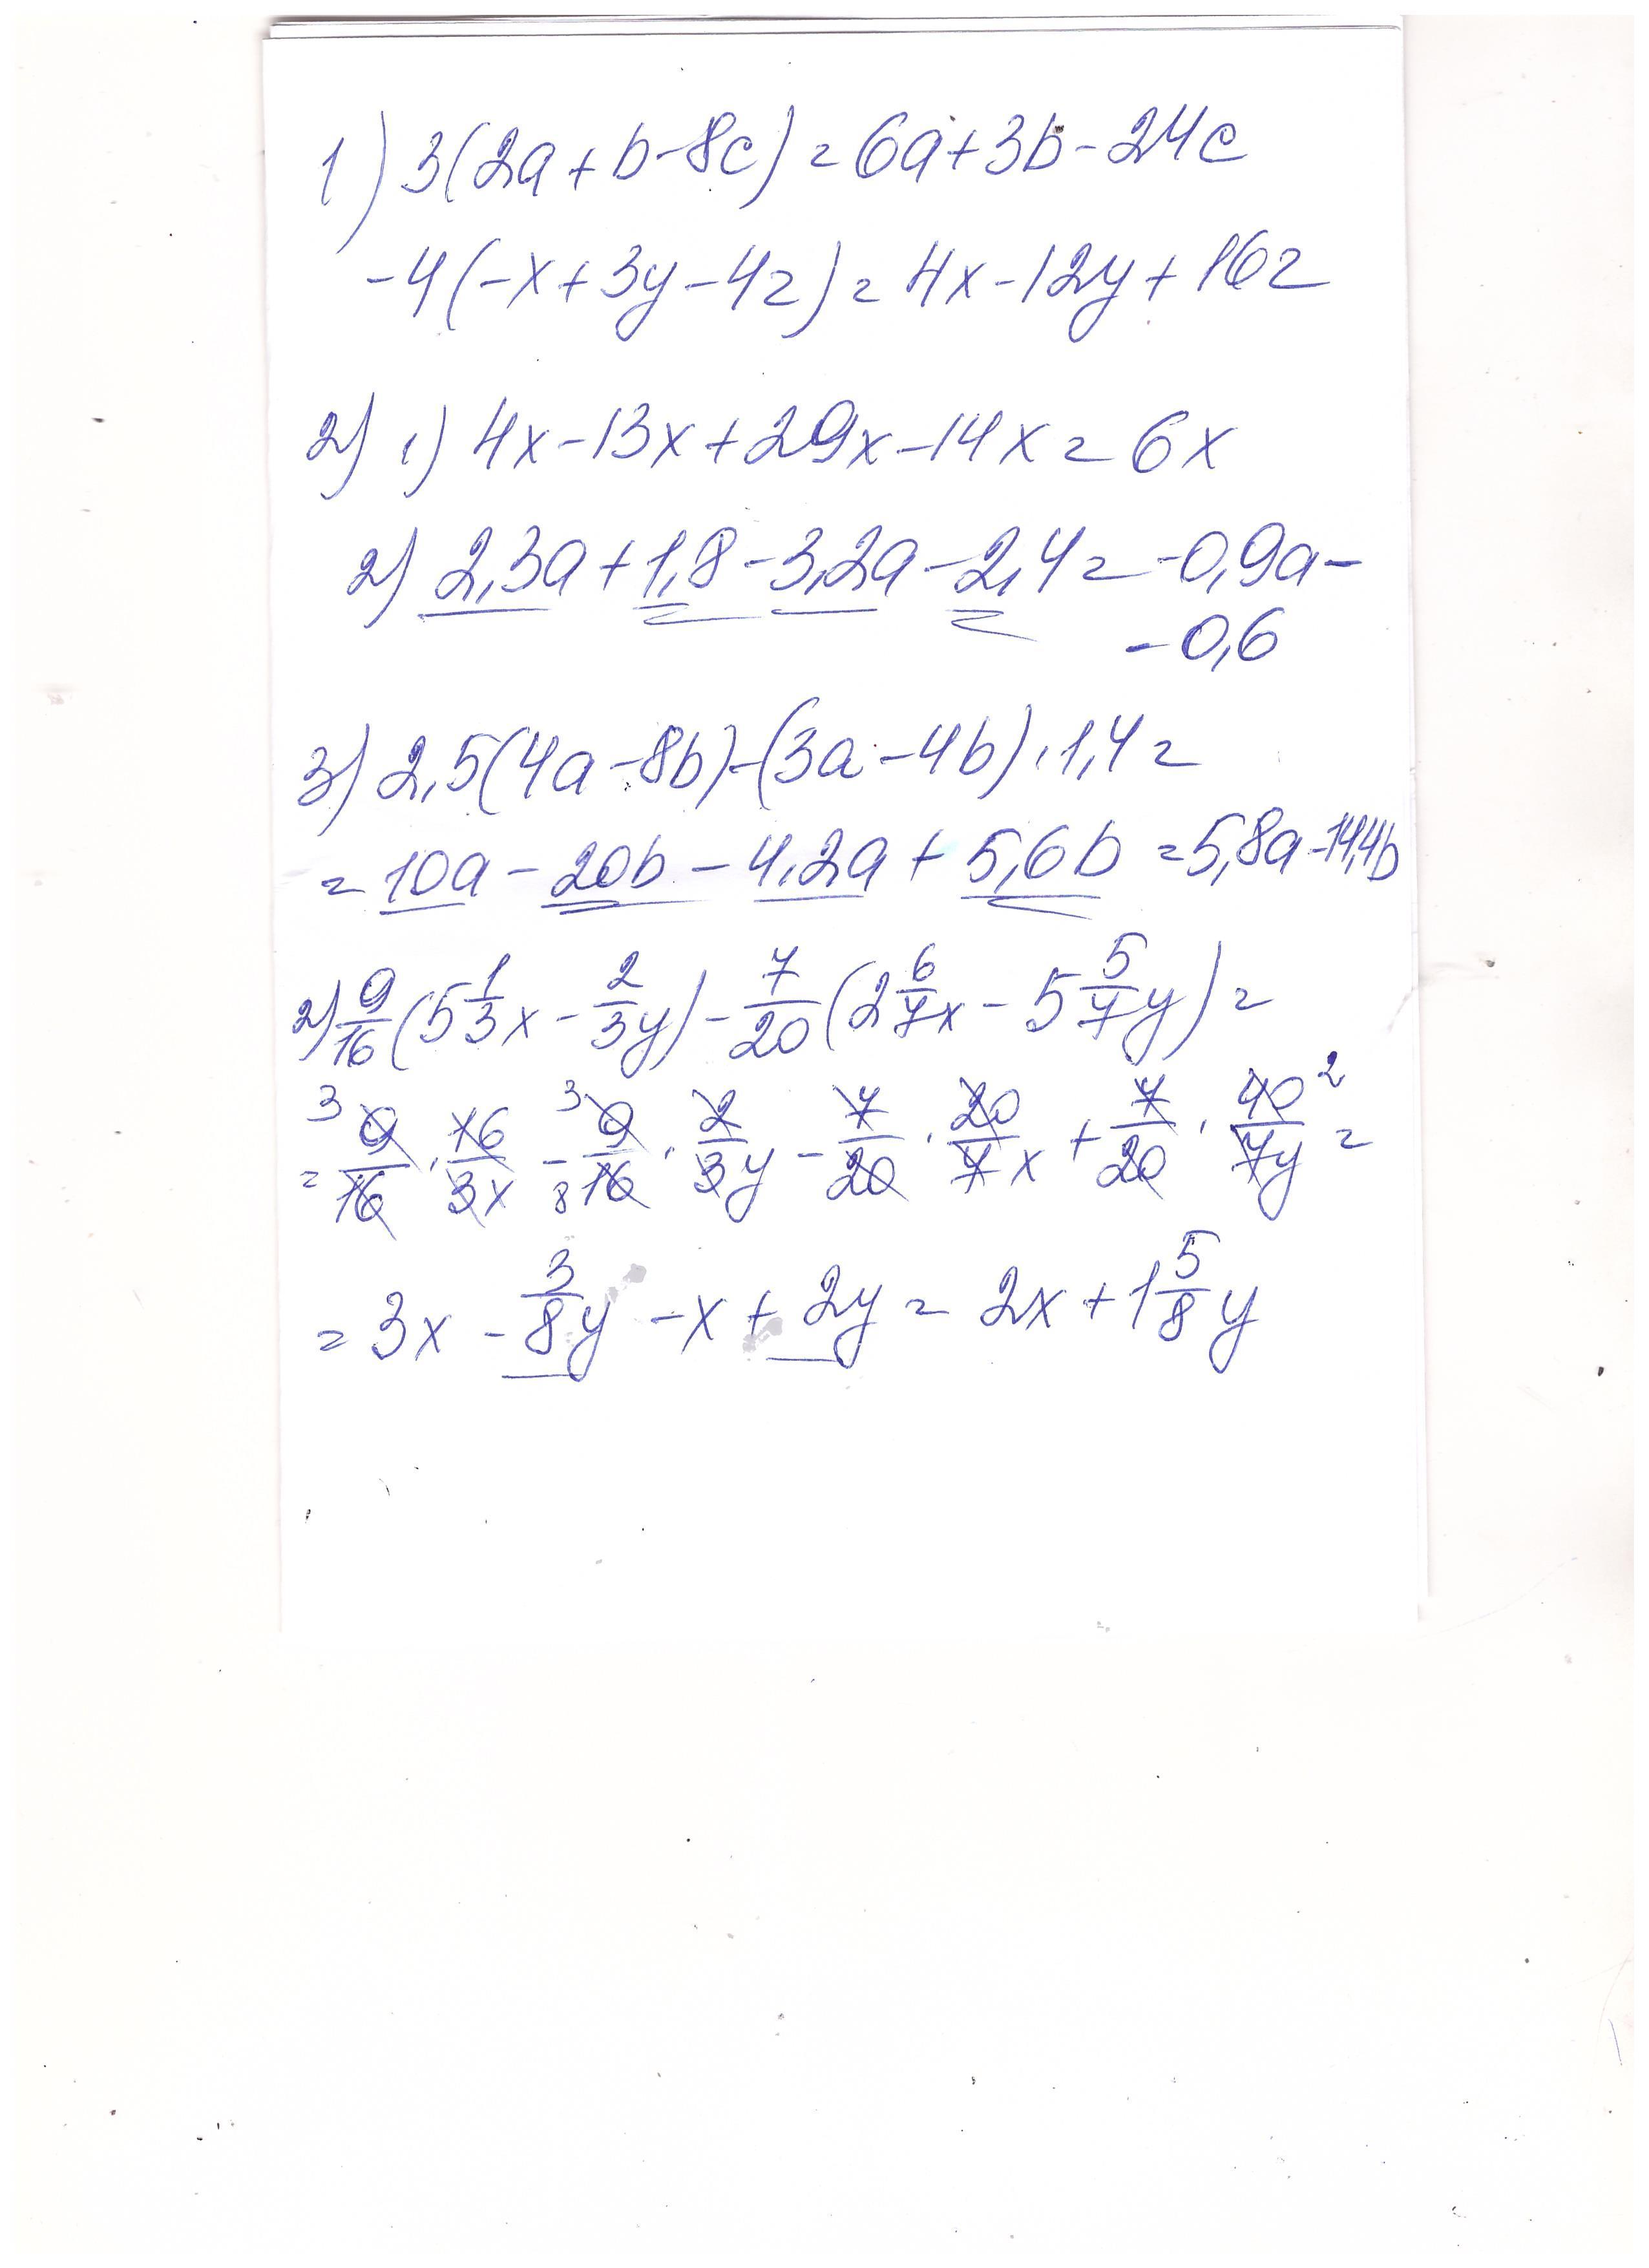 1) 3(2a+b-8c)=6a+3b-24c
-4(-x+3y-4z)=4x-12y+16z
2) 1) 4x-13x+29x-14x=6x
2) 2,3a+1,8-3,2a-2,4=-0,9a-
-0,6
3) 2,5(4a-8b)-(3a-4b)·1,4=
=10a-20b-4,2a+5,6b=5,8a-14,4b
2) 9/16(5 1/3x-2/3y)-7/20(2 6/7x-5 5/7y)=
=3 9/16·16/3x-3 9/8 16·2/3y-7/20·20/7x+7/20·40/7y 2=
=3x-3/8y-x+2y=2x+1 5/8y